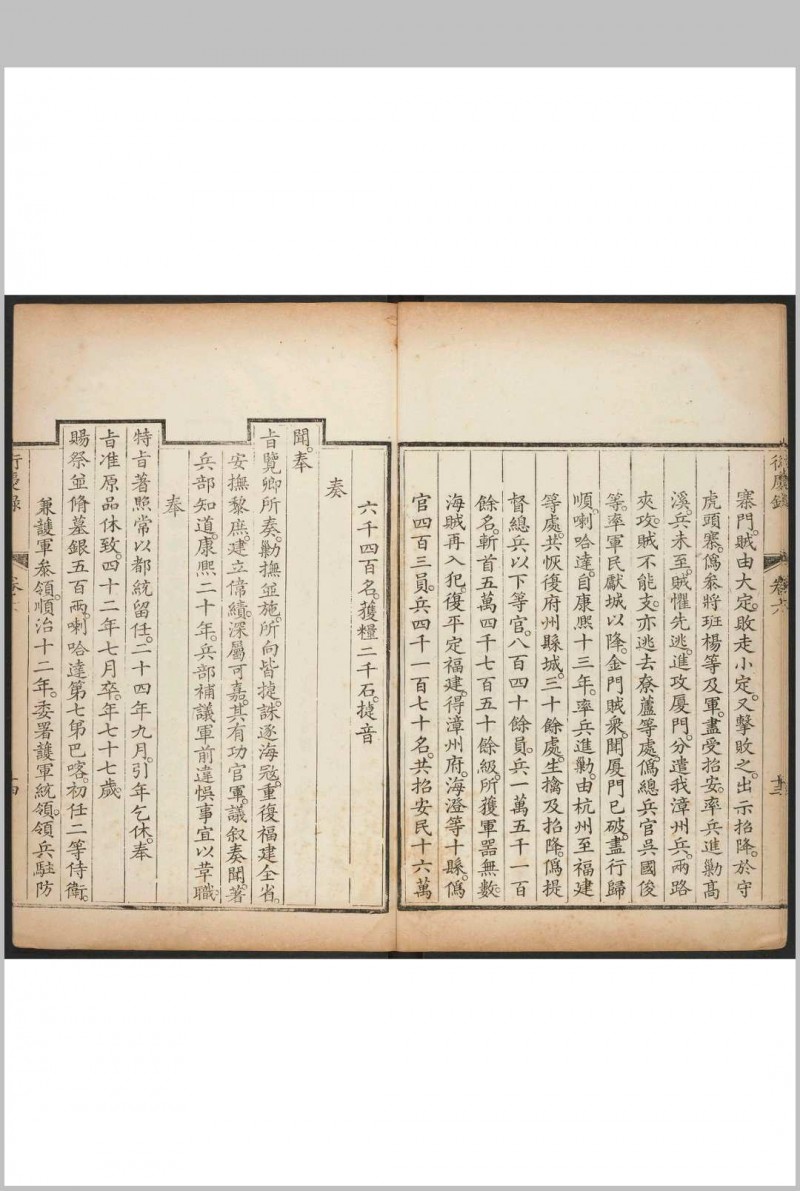 衍慶錄 卷六 十三
寨門。賊由大定。敗走小定。又擊敗之。出示招降。於守
虎頭寨。僞參將班楊等及軍。盡受招安。率兵進勦高
溪。兵未至。賊懼先逃。進攻厦門。分遣我漳州兵。兩路
夾攻。賊不能支。亦逃去。寮蘆等處。僞總兵官吳國俊
等。率軍民獻城以降。金門賊衆。聞厦門已破。盡行歸
順。喇哈達。自康熙十三年。率兵進勦。由杭州至福建
等處。共恢復府州縣城。三十餘處。生擒及招降。僞提
督總兵以下等官。八百四十餘員。兵一萬五千一百
餘名。斬首五萬四千七百五十餘級。所獲軍器無數。
海賊再入犯。復平定福建。得漳州府。海澄等十縣。僞
官四百三員。兵四千一百七十名。共招安民十六萬
六千四百名。獲糧二千石。㨗音
奏
聞。奉
旨覽卿所奏。勦撫並施。所向皆㨗。誅逐海冦。重復福建全省。
安撫黎庶。建立偉績。深屬可嘉。其有功官軍。議叙奏聞。著
兵部知道。康熙二十年。兵部補議軍前違悞事宜以革職
奉
特旨著照常以都統留任。二十四年九月。引年乞休。奉
旨准原品休致。四十二年七月卒。年七十七歲。
賜祭並脩墓銀五百兩。喇哈達第七弟巴喀。初任二等侍衛。
兼護軍參領。順治十二年。委署護軍統領。領兵駐防
衍慶錄 卷六 十四